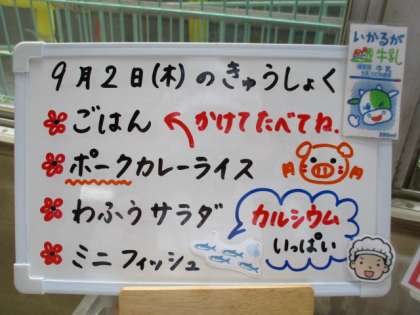 9月2日(木)のきゅうしょく
ごはん かけてたべてね。
ポークカレーライス
わふうサラダ カルシウム
ミニフィッシュ いっぱい
いかるが
牛乳